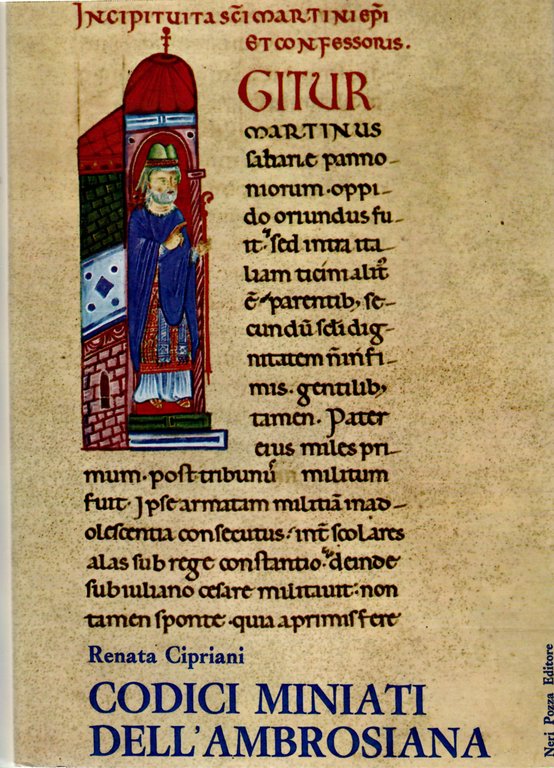 INCIPIT UITA SC̄I MARTINI EP̄I
ET CONFESSORIS.
IGITUR
MARTINUS
sabariæ panno-
niorum·oppi-
do oriundus fu-
it·sed intra ita-
liam ticini alit᷑
ē·parentib, se-
cundū scl̄i dig-
nitatem n̄ infi-
mis·gentilib,
tamen. Pater
eius miles pri-
mum·post tribunū militum
fuit. Ipse armatam militiā in ad-
olescentia consecutus·int̄ scolares
alas sub rege constantio·deinde
sub iuliano cesare militauit·non
tamen sponte·quia a primis fere
Renata Cipriani
CODICI MINIATI
DELL'AMBROSIANA
Neri Pozza Editore